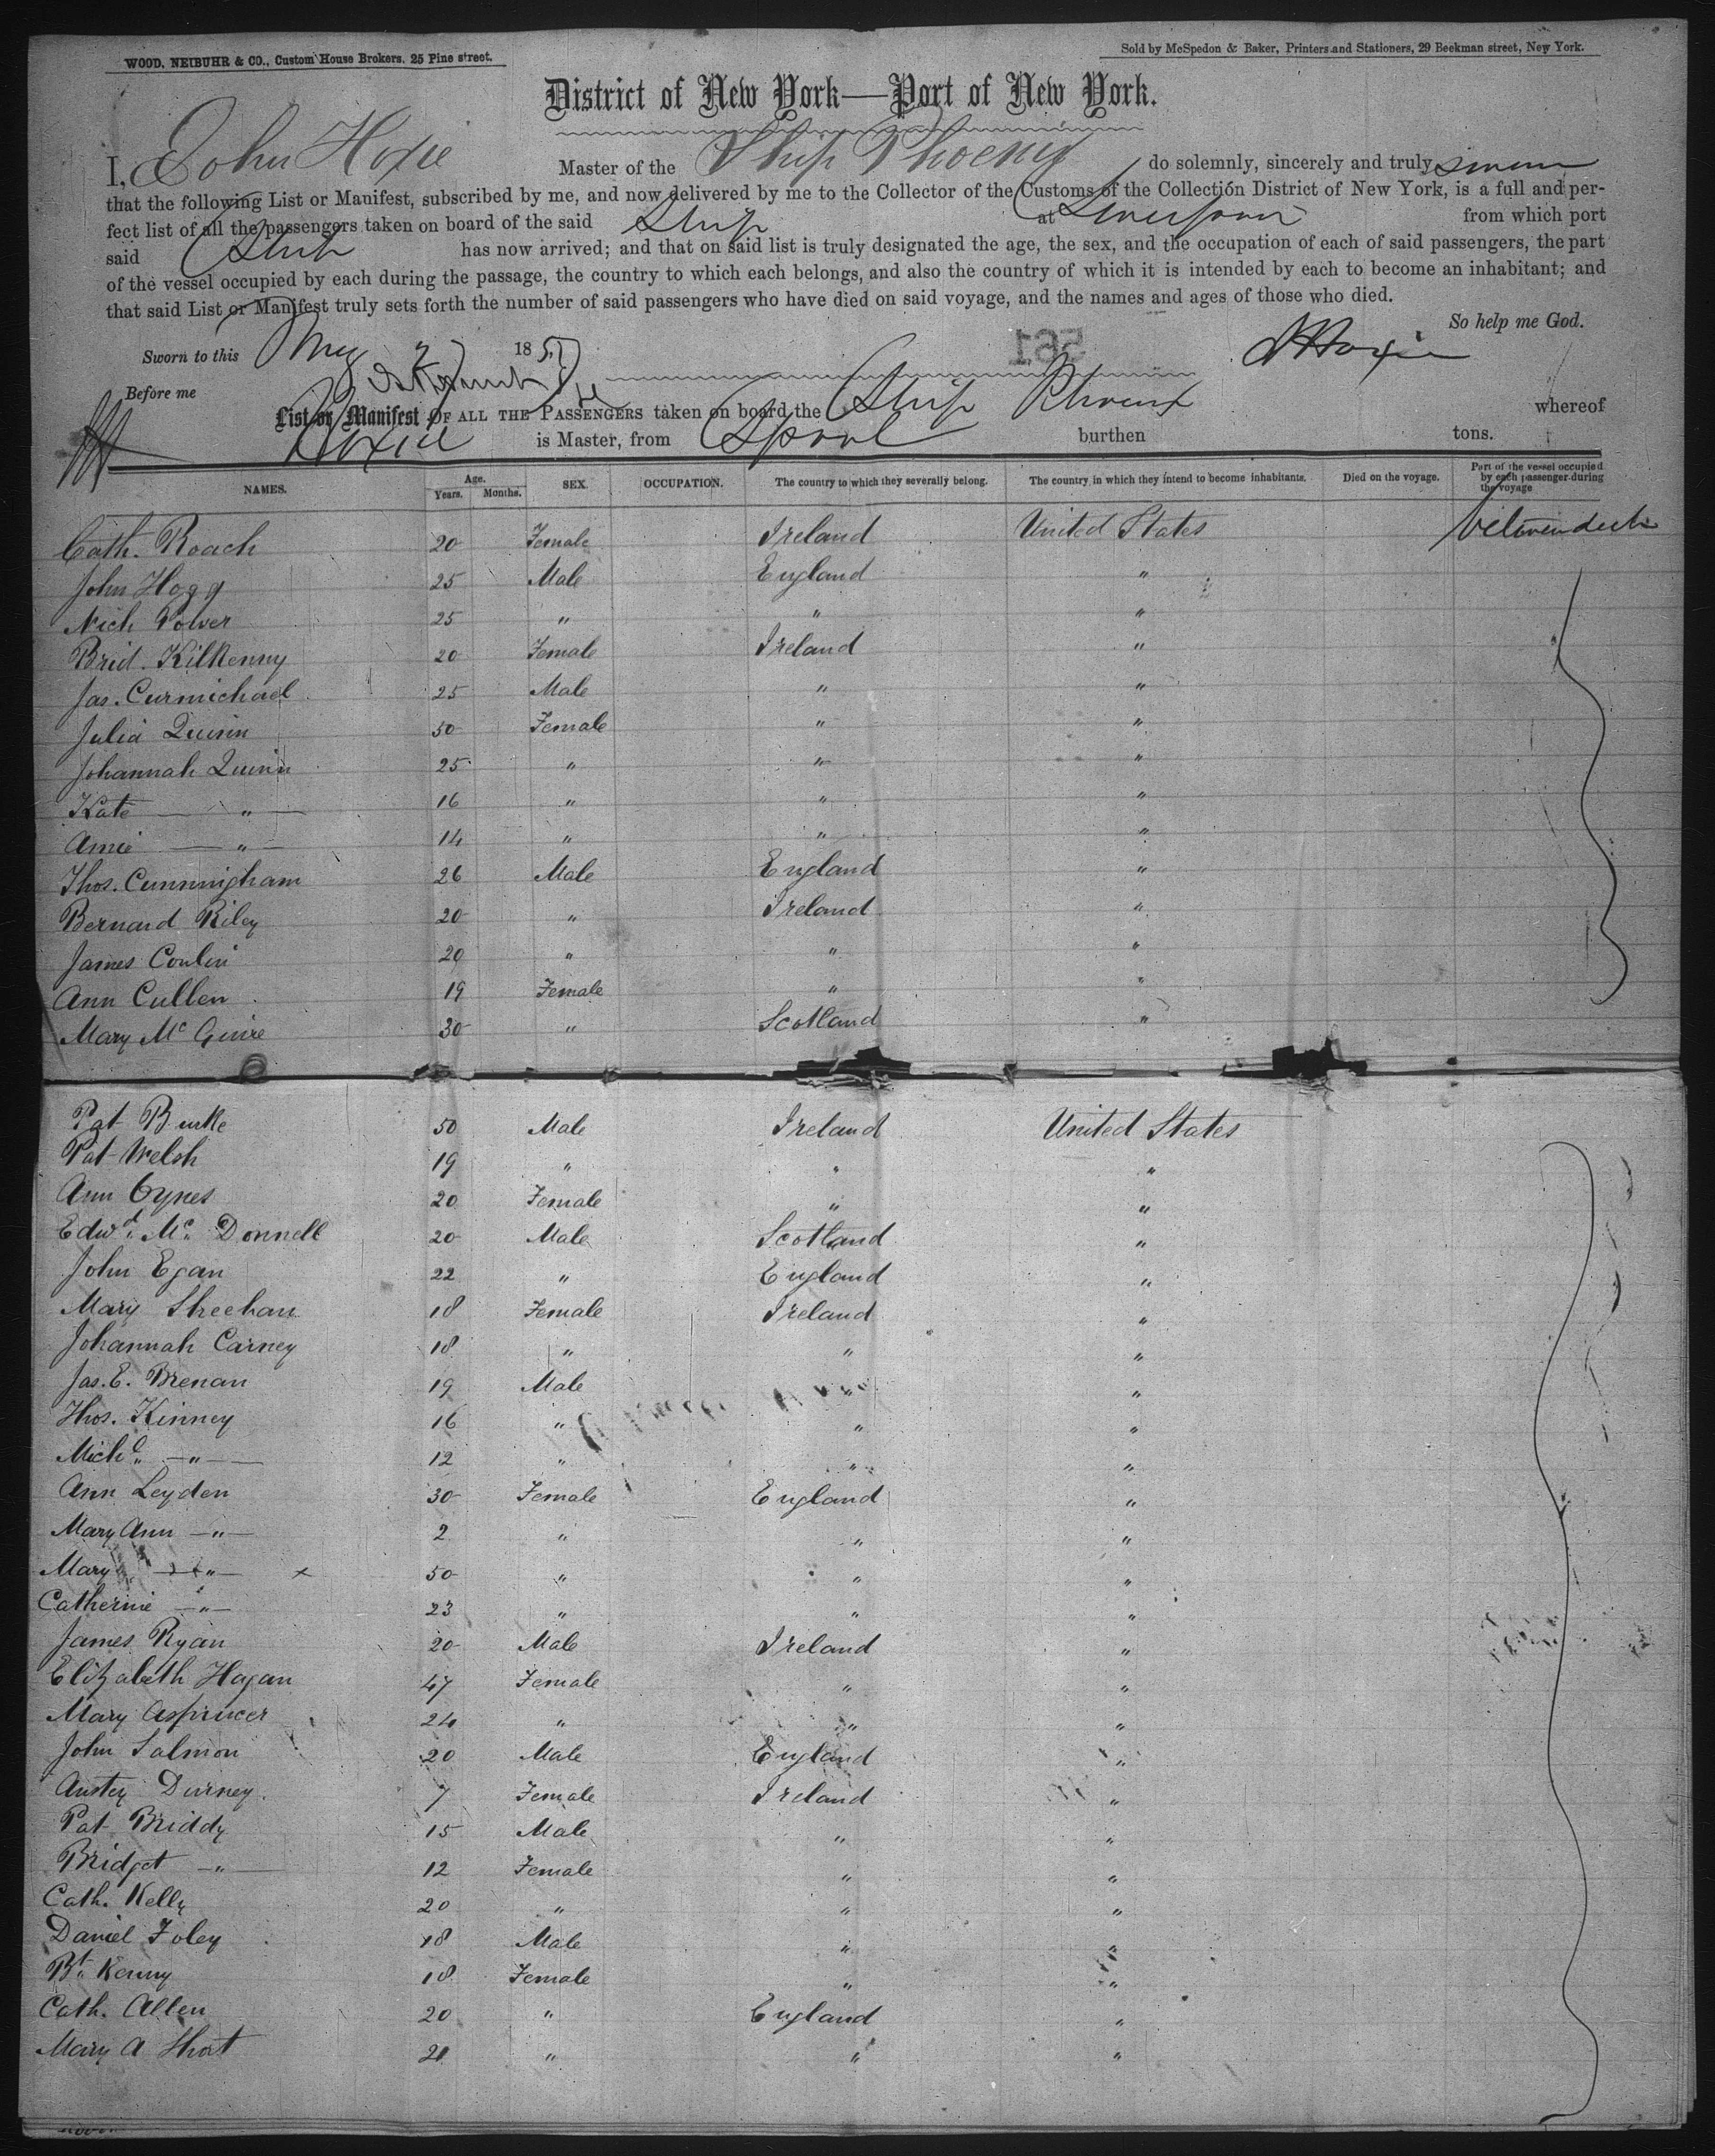 WOOD, NEIBUHR & CO., Custom House Brokers, 25 Pine street.
Sold by McSpedon & Baker, Printers and Stationers, 29 Beekman street, New York.
District of New York—Port of New York.
I, John Hoxie Master of the Ship Phoenix do solemnly, sincerely and truly swear
that the following List or Manifest, subscribed by me, and now delivered by me to the Collector of the Customs of the Collection District of New York, is a full and per-
fect list of all the passengers taken on board of the said Ship at Liverpool from which port
said Ship has now arrived; and that on said list is truly designated the age, the sex, and the occupation of each of said passengers, the part
of the vessel occupied by each during the passage, the country to which each belongs, and also the country of which it is intended by each to become an inhabitant; and
that said List or Manifest truly sets forth the number of said passengers who have died on said voyage, and the names and ages of those who died.
So help me God.
Sworn to this May 185 J Hoxie
561
Before me
List or Manifest OF ALL THE PASSENGERS taken on board the Ship Phoenix whereof
Hoxie is Master, from Lpool burthen tons.
NAMES. Age. Years. Months. SEX. OCCUPATION. The country to which they severally belong. The country in which they intend to become inhabitants. Died on the voyage. Part of the vessel occupied by each passenger during the voyage
Cath. Roach 20 Female Ireland United States
John Hogg 25 Male England "
Nich Power 25 " " "
Brid. Kilkenny 20 Female Ireland "
Jas. Curmichael 25 Male " "
Julia Quinn 50 Female " "
Johannah Quinn 25 " " "
Kate — " — 16 " " "
Amie — " — 14 " " "
Thos. Cunningham 26 Male England "
Bernard Riley 20 " Ireland "
James Conlin 20 " " "
Ann Cullen 19 Female " "
Mary McGuire 30 " Scotland "
Pat Burke 50 Male Ireland United States
Pat Welsh 19 " " "
Ann Oynes 20 Female " "
Edwd. Mc. Donnell 20 Male Scotland "
John Egan 22 " England "
Mary Sheehan 18 Female Ireland "
Johannah Carney 18 " " "
Jas. E. Brenan 19 Male " "
Thos. Kinney 16 " " "
Michl. — " — 12 " " "
Ann Leyden 30 Female England "
Mary Ann — " — 2 " " "
Mary — " — x 50 " " "
Catherine — " — 23 " " "
James Ryan 20 Male Ireland "
Elizabeth Hagan 47 Female " "
Mary 24 " " "
John Salmon 20 Male England "
Durney 7 Female Ireland "
Pat Briddy 15 Male " "
Bridget — " — 12 Female " "
Cath. Kelly 20 " " "
Daniel Foley 18 Male " "
Bt. Kenny 18 Female " "
Cath. Allen 20 " England "
Mary A Short 21 " " "